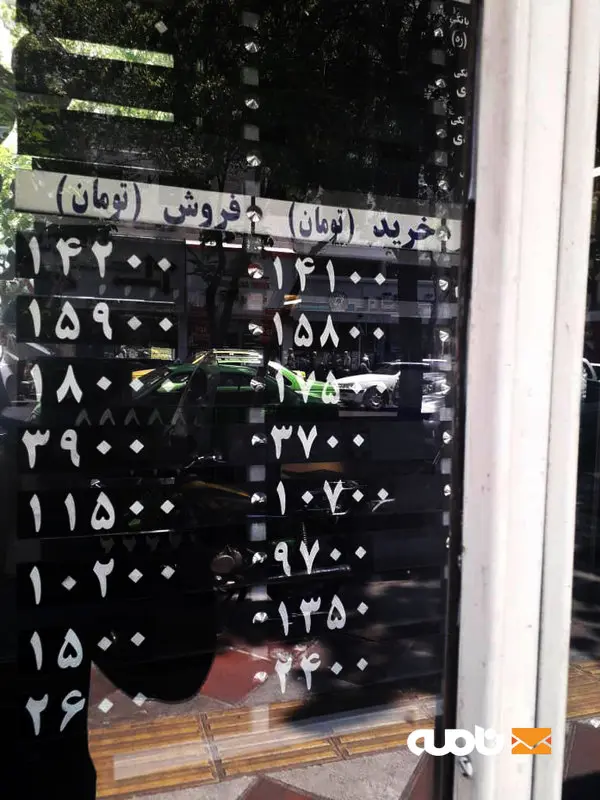 بانکی
(ره)
خرید (تومان) فروش (تومان)
۱۴۱۰۰ ۱۴۲۰۰
۱۵۸۰۰ ۱۵۹۰۰
۱۷۵۰ ۱۸۰۰۰
۳۷۰۰ ۳۹۰۰
۱۰۷۰۰ ۱۱۵۰۰
۹۷۰۰ ۱۰۲۰۰
۱۳۵۰ ۱۵۰۰
۲۴۰۰ ۲۶۰۰
نامه